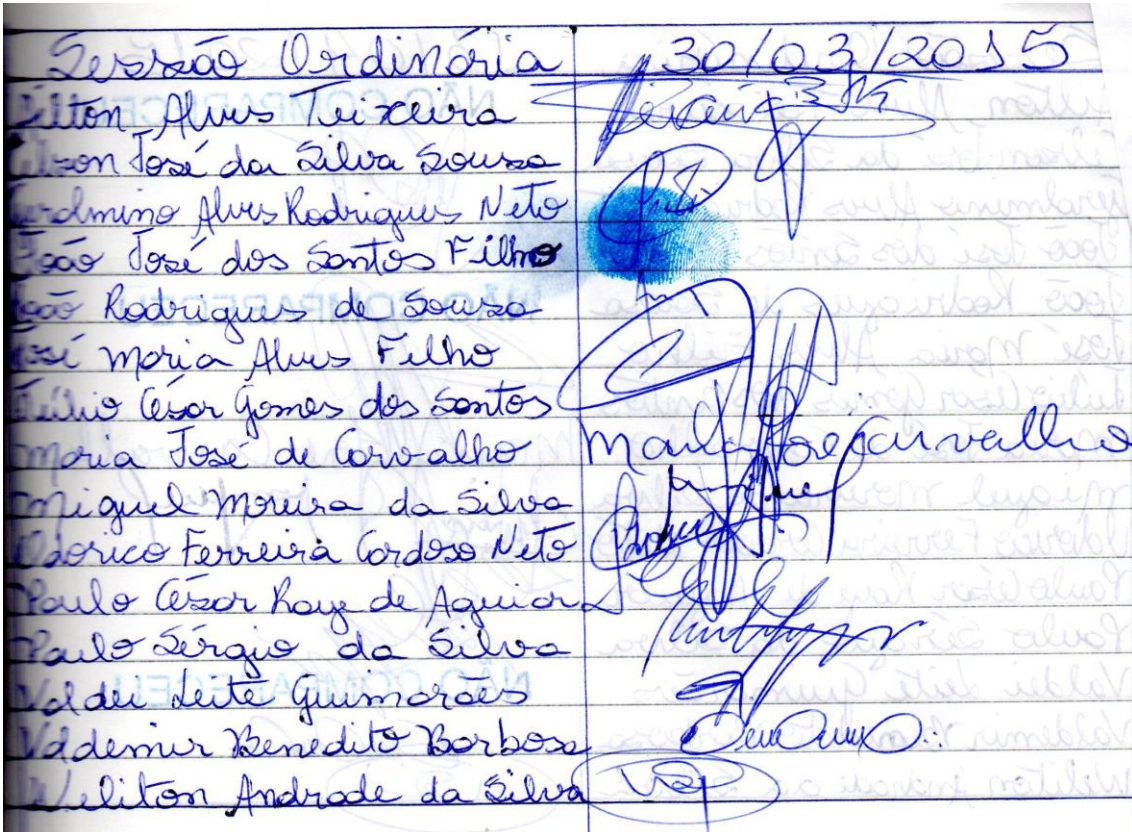 Sessão Ordinária 30/03/2015
Alves Teixeira
José da Silva Sousa
Alves Rodrigues Neto
João José dos Santos Filho
João Rodrigues de Souza
José Maria Alves Filho
Júlio César Gomes dos Santos
Maria José de Carvalho Maria Jose Carvalho
Miguel Moreira da Silva
Odorico Ferreira Cardoso Neto
Paulo César Raye de Aguiar
Paulo Sérgio da Silva
Valdei Leite Guimarães
Valdemir Benedito Barbosa
Weliton Andrade da Silva